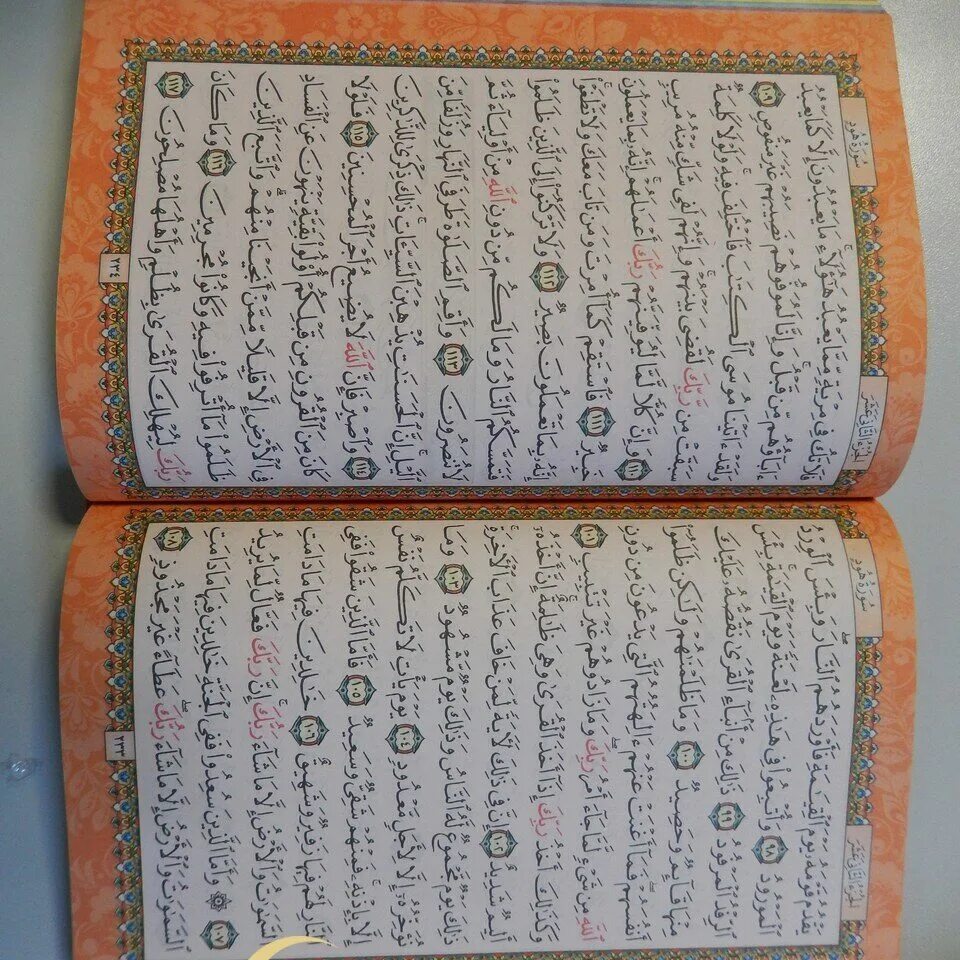 الجُزْءُ الثَّانِي عَشَرَ
سُورَةُ هُودٍ
يَقْدُمُ قَوْمَهُۥ يَوْمَ ٱلْقِيَـٰمَةِ فَأَوْرَدَهُمُ ٱلنَّارَ ۖ وَبِئْسَ ٱلْوِرْدُ
ٱلْمَوْرُودُ ٩٨ وَأُتْبِعُوا۟ فِى هَـٰذِهِۦ لَعْنَةً وَيَوْمَ ٱلْقِيَـٰمَةِ ۚ بِئْسَ
ٱلرِّفْدُ ٱلْمَرْفُودُ ٩٩ ذَٰلِكَ مِنْ أَنۢبَآءِ ٱلْقُرَىٰ نَقُصُّهُۥ عَلَيْكَ ۖ
مِنْهَا قَآئِمٌ وَحَصِيدٌ ١٠٠ وَمَا ظَلَمْنَـٰهُمْ وَلَـٰكِن ظَلَمُوٓا۟
أَنفُسَهُمْ ۖ فَمَآ أَغْنَتْ عَنْهُمْ ءَالِهَتُهُمُ ٱلَّتِى يَدْعُونَ مِن دُونِ
ٱللَّهِ مِن شَىْءٍ لَّمَّا جَآءَ أَمْرُ رَبِّكَ ۖ وَمَا زَادُوهُمْ غَيْرَ تَتْبِيبٍ ١٠١
وَكَذَٰلِكَ أَخْذُ رَبِّكَ إِذَآ أَخَذَ ٱلْقُرَىٰ وَهِىَ ظَـٰلِمَةٌ ۚ إِنَّ أَخْذَهُۥٓ
أَلِيمٌ شَدِيدٌ ١٠٢ إِنَّ فِى ذَٰلِكَ لَـَٔايَةً لِّمَنْ خَافَ عَذَابَ ٱلْـَٔاخِرَةِ ۚ
ذَٰلِكَ يَوْمٌ مَّجْمُوعٌ لَّهُ ٱلنَّاسُ وَذَٰلِكَ يَوْمٌ مَّشْهُودٌ ١٠٣ وَمَا
نُؤَخِّرُهُۥٓ إِلَّا لِأَجَلٍ مَّعْدُودٍ ١٠٤ يَوْمَ يَأْتِ لَا تَكَلَّمُ نَفْسٌ
إِلَّا بِإِذْنِهِۦ ۚ فَمِنْهُمْ شَقِىٌّ وَسَعِيدٌ ١٠٥ فَأَمَّا ٱلَّذِينَ شَقُوا۟ فَفِى
ٱلنَّارِ لَهُمْ فِيهَا زَفِيرٌ وَشَهِيقٌ ١٠٦ خَـٰلِدِينَ فِيهَا مَا دَامَتِ
ٱلسَّمَـٰوَٰتُ وَٱلْأَرْضُ إِلَّا مَا شَآءَ رَبُّكَ ۚ إِنَّ رَبَّكَ فَعَّالٌ لِّمَا يُرِيدُ
١٠٧ ۞ وَأَمَّا ٱلَّذِينَ سُعِدُوا۟ فَفِى ٱلْجَنَّةِ خَـٰلِدِينَ فِيهَا مَا دَامَتِ
ٱلسَّمَـٰوَٰتُ وَٱلْأَرْضُ إِلَّا مَا شَآءَ رَبُّكَ ۖ عَطَآءً غَيْرَ مَجْذُوذٍ ١٠٨
٢٣٣
الجُزْءُ الثَّانِي عَشَرَ
سُورَةُ هُودٍ
فَلَا تَكُ فِى مِرْيَةٍ مِّمَّا يَعْبُدُ هَـٰٓؤُلَآءِ ۚ مَا يَعْبُدُونَ إِلَّا كَمَا يَعْبُدُ
ءَابَآؤُهُم مِّن قَبْلُ ۚ وَإِنَّا لَمُوَفُّوهُمْ نَصِيبَهُمْ غَيْرَ مَنقُوصٍ ١٠٩
وَلَقَدْ ءَاتَيْنَا مُوسَى ٱلْكِتَـٰبَ فَٱخْتُلِفَ فِيهِ ۚ وَلَوْلَا كَلِمَةٌ
سَبَقَتْ مِن رَّبِّكَ لَقُضِىَ بَيْنَهُمْ ۚ وَإِنَّهُمْ لَفِى شَكٍّ مِّنْهُ مُرِيبٍ
١١٠ وَإِنَّ كُلًّا لَّمَّا لَيُوَفِّيَنَّهُمْ رَبُّكَ أَعْمَـٰلَهُمْ ۚ إِنَّهُۥ بِمَا يَعْمَلُونَ
خَبِيرٌ ١١١ فَٱسْتَقِمْ كَمَآ أُمِرْتَ وَمَن تَابَ مَعَكَ وَلَا تَطْغَوْا۟ ۚ
إِنَّهُۥ بِمَا تَعْمَلُونَ بَصِيرٌ ١١٢ وَلَا تَرْكَنُوٓا۟ إِلَى ٱلَّذِينَ ظَلَمُوا۟
فَتَمَسَّكُمُ ٱلنَّارُ وَمَا لَكُم مِّن دُونِ ٱللَّهِ مِنْ أَوْلِيَآءَ ثُمَّ
لَا تُنصَرُونَ ١١٣ وَأَقِمِ ٱلصَّلَوٰةَ طَرَفَىِ ٱلنَّهَارِ وَزُلَفًا مِّنَ
ٱلَّيْلِ ۚ إِنَّ ٱلْحَسَنَـٰتِ يُذْهِبْنَ ٱلسَّيِّـَٔاتِ ۚ ذَٰلِكَ ذِكْرَىٰ لِلذَّٰكِرِينَ
١١٤ وَٱصْبِرْ فَإِنَّ ٱللَّهَ لَا يُضِيعُ أَجْرَ ٱلْمُحْسِنِينَ ١١٥ فَلَوْلَا
كَانَ مِنَ ٱلْقُرُونِ مِن قَبْلِكُمْ أُو۟لُوا۟ بَقِيَّةٍ يَنْهَوْنَ عَنِ ٱلْفَسَادِ
فِى ٱلْأَرْضِ إِلَّا قَلِيلًا مِّمَّنْ أَنجَيْنَا مِنْهُمْ ۗ وَٱتَّبَعَ ٱلَّذِينَ
ظَلَمُوا۟ مَآ أُتْرِفُوا۟ فِيهِ وَكَانُوا۟ مُجْرِمِينَ ١١٦ وَمَا كَانَ
رَبُّكَ لِيُهْلِكَ ٱلْقُرَىٰ بِظُلْمٍ وَأَهْلُهَا مُصْلِحُونَ ١١٧
٢٣٤